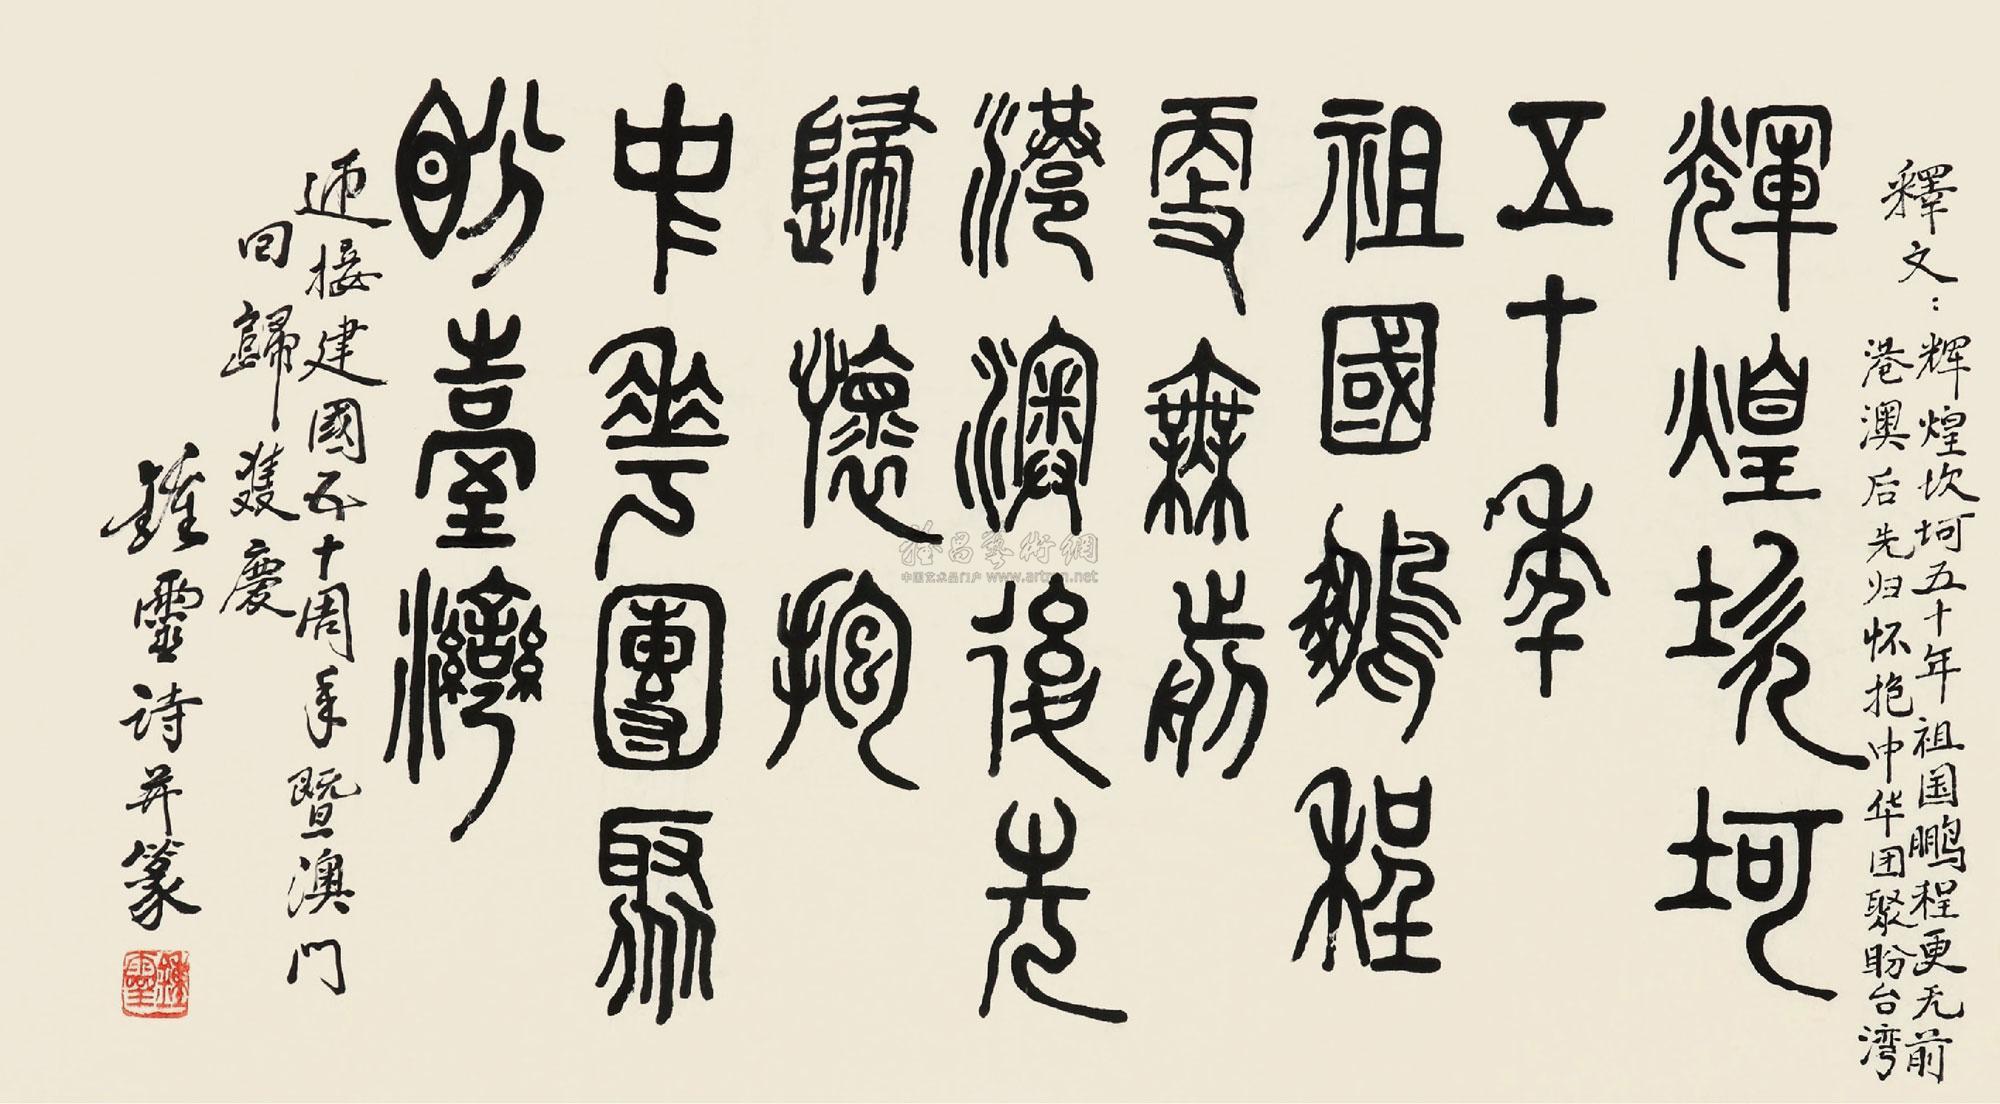 釋文：辉煌坎坷五十年祖国鹏程更无前
港澳后先归怀抱中华团聚盼台湾
輝煌坎坷
五十年
祖國鵬程
更無前
港澳後先
歸懷抱
中華團聚
盼臺灣
迎接建國五十周年暨澳門
回歸雙慶
鍾靈诗并篆
鍾靈
雅昌藝術網
中国艺术品门户 www.artron.net